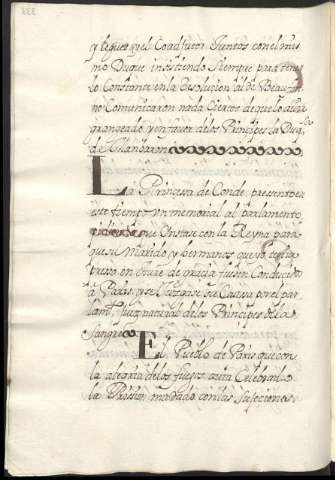 y segui y el Coadjutor Juntos con el mis
mo Duque insistiendo Siempre para tener
lo Constante en la Resolucion al de Beaufor
no Comunicaron nada Ciertos de que lo abian
grangeado y en favor de los Principes la Duq.sa
de
La Princesa de Conde presento en
este tiempo un memorial al parlamento
pidiendo que Instase con la Reyna para
que su Marido y hermanos que
presso en Havre de gracia fuesen Conducidos
a Paris y se Juzgase su Causa por el par
lam.to Juez natural de los Principes de la
sangre
El Pueblo de Paris que con
la alegria de los fuegos avia Celebrado
la Prision mudado con las Sujeciones